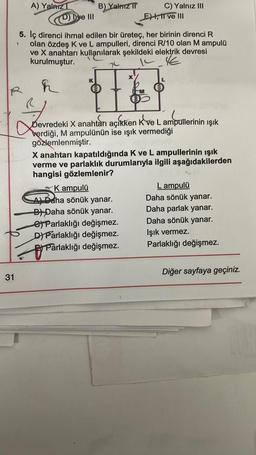 A) Yalnız I B) Yalnız II C) Yalnız III
D) I ve III E) I, II ve III
5. İç direnci ihmal edilen bir üreteç, her birinin direnci R
olan özdeş K ve L ampulleri, direnci R/10 olan M ampulü
ve X anahtarı kullanılarak şekildeki elektrik devresi
kurulmuştur.
K X L
M
Devredeki X anahtarı açıkken K ve L ampullerinin ışık
verdiği, M ampulünün ise ışık vermediği
gözlemlenmiştir.
X anahtarı kapatıldığında K ve L ampullerinin ışık
verme ve parlaklık durumlarıyla ilgili aşağıdakilerden
hangisi gözlemlenir?
K ampulü L ampulü
A) Daha sönük yanar. Daha sönük yanar.
B) Daha sönük yanar. Daha parlak yanar.
C) Parlaklığı değişmez. Daha sönük yanar.
D) Parlaklığı değişmez. Işık vermez.
E) Parlaklığı değişmez. Parlaklığı değişmez.
Diğer sayfaya geçiniz.
31